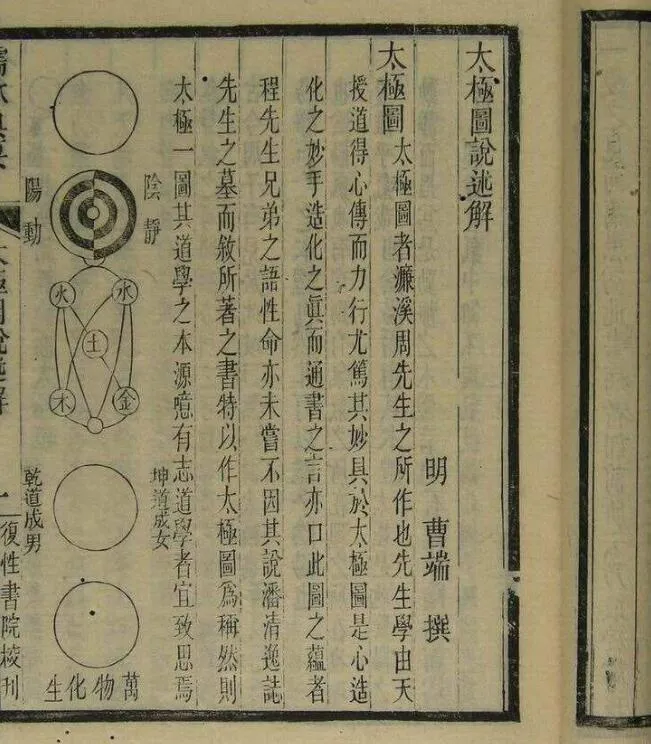 太極圖說述解
明 曹端 撰
太極圖 太極圖者濂溪周先生之所作也先生學由天
授道得心傳而力行尤篤其妙具於太極圖是心造
化之妙手造化之眞而通書之言亦口此圖之蘊者
程先生兄弟之語性命亦未嘗不因其說潘清逸誌
先生之墓而敘所著之書特以作太極圖爲稱然則
太極一圖其道學之本源噫有志道學者宜致思焉
陰靜
陽動
水
火
土
金
木
坤道成女
乾道成男
萬物化生
太極圖說述解
一
復性書院校刊